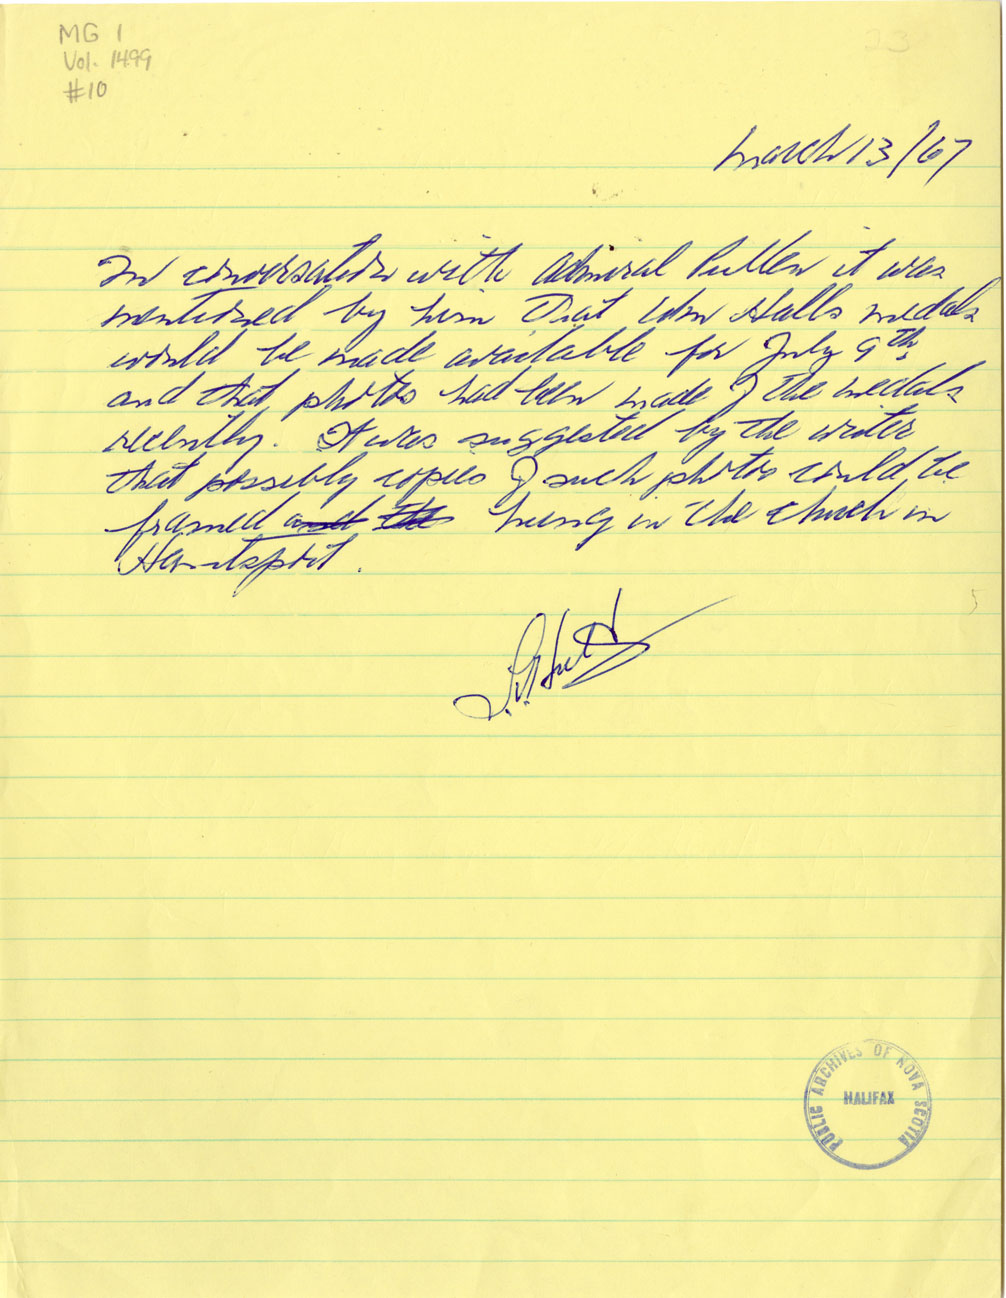 MG 1
Vol. 1499
#10
23
March 13/67
In conversation with Admiral Pullen it was
mentioned by him that Wm Halls medals
would be made available for July 9th,
and that photos had been made of the medals
recently. It was suggested by the writer
that possibly copies of such photos could be
framed and the hung in the church in
Hantsport.
PUBLIC ARCHIVES OF NOVA SCOTIA
HALIFAX